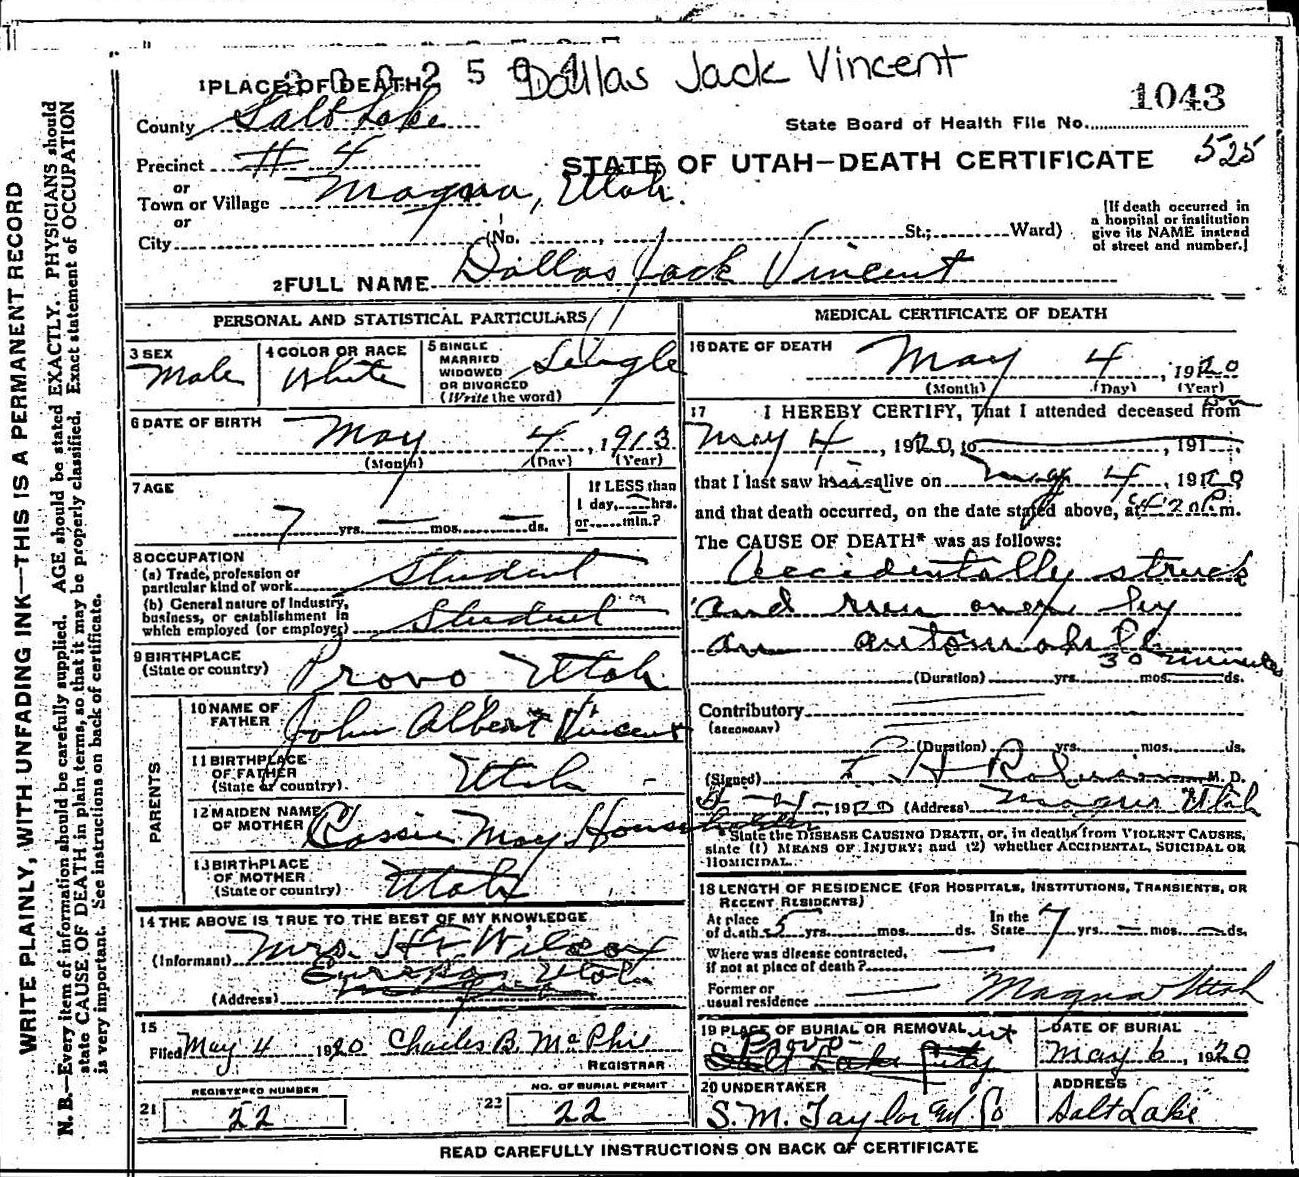 Dallas Jack Vincent
1 PLACE OF DEATH
1043
County Salt Lake
State Board of Health File No.
Precinct # 4
STATE OF UTAH—DEATH CERTIFICATE
525
or
Town or Village Magna, Utah.
or
City (No. , St.; Ward)
[If death occurred in
a hospital or institution
give its NAME instead
of street and number.]
2 FULL NAME Dallas Jack Vincent
PERSONAL AND STATISTICAL PARTICULARS
3 SEX
Male
4 COLOR OR RACE
White
5 SINGLE
MARRIED
WIDOWED
OR DIVORCED
(Write the word)
Single
6 DATE OF BIRTH
May 4, 1913
(Month) (Day) (Year)
7 AGE
7 yrs. — mos. — ds.
If LESS than
1 day, hrs.
or min.?
8 OCCUPATION
(a) Trade, profession or
particular kind of work Student
(b) General nature of Industry,
business, or establishment in
which employed (or employer) Student
9 BIRTHPLACE
(State or country) Provo Utah
PARENTS
10 NAME OF
FATHER John Albert Vincent
11 BIRTHPLACE
OF FATHER
(State or country) Utah
12 MAIDEN NAME
OF MOTHER Cassie May Householder
13 BIRTHPLACE
OF MOTHER
(State or country) Utah
14 THE ABOVE IS TRUE TO THE BEST OF MY KNOWLEDGE
(Informant) Mrs. H F Wilcox
Eureka Utah
(Address)
15
Filed May 4 1920 Charles B. McPhie
REGISTRAR
REGISTERED NUMBER
21 22
NO. OF BURIAL PERMIT
22 22
MEDICAL CERTIFICATE OF DEATH
16 DATE OF DEATH
May 4, 1920
(Month) (Day) (Year)
17 I HEREBY CERTIFY, That I attended deceased from on
May 4, 1920, to , 191
that I last saw h alive on May 4, 1920
and that death occurred, on the date stated above, at 4:20 P. m.
The CAUSE OF DEATH* was as follows:
Accidentally struck
and run over by
an automobile
30 minutes
(Duration) yrs. mos. ds.
Contributory
(SECONDARY)
(Duration) yrs. mos. ds.
(Signed) M. D.
5-4-1920 (Address) Magna Utah
*State the DISEASE CAUSING DEATH, or, in deaths from VIOLENT CAUSES,
state (1) MEANS OF INJURY; and (2) whether ACCIDENTAL, SUICIDAL OR
HOMICIDAL.
18 LENGTH OF RESIDENCE (FOR HOSPITALS, INSTITUTIONS, TRANSIENTS, OR
RECENT RESIDENTS)
At place
of death 5 yrs. mos. ds.
In the
State 7 yrs. — mos. — ds.
Where was disease contracted,
if not at place of death?
Former or
usual residence Magna Utah
19 PLACE OF BURIAL OR REMOVAL
Provo Ut
Salt Lake City
DATE OF BURIAL
May 6, 1920
20 UNDERTAKER
S. M. Taylor and Co
ADDRESS
Salt Lake
READ CAREFULLY INSTRUCTIONS ON BACK OF CERTIFICATE
WRITE PLAINLY, WITH UNFADING INK—THIS IS A PERMANENT RECORD
N. B.—Every item of information should be carefully supplied. AGE should be stated EXACTLY. PHYSICIANS should
state CAUSE OF DEATH in plain terms, so that it may be properly classified. Exact statement of OCCUPATION
is very important. See instructions on back of certificate.